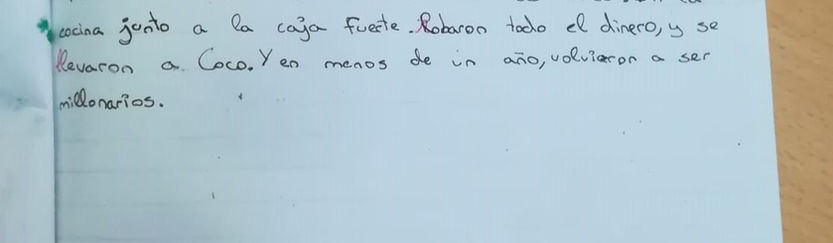 cocina junto a la caja fuerte. Robaron todo el dinero, y se
llevaron a Coco. Y en menos de un año, volvieron a ser
millonarios.